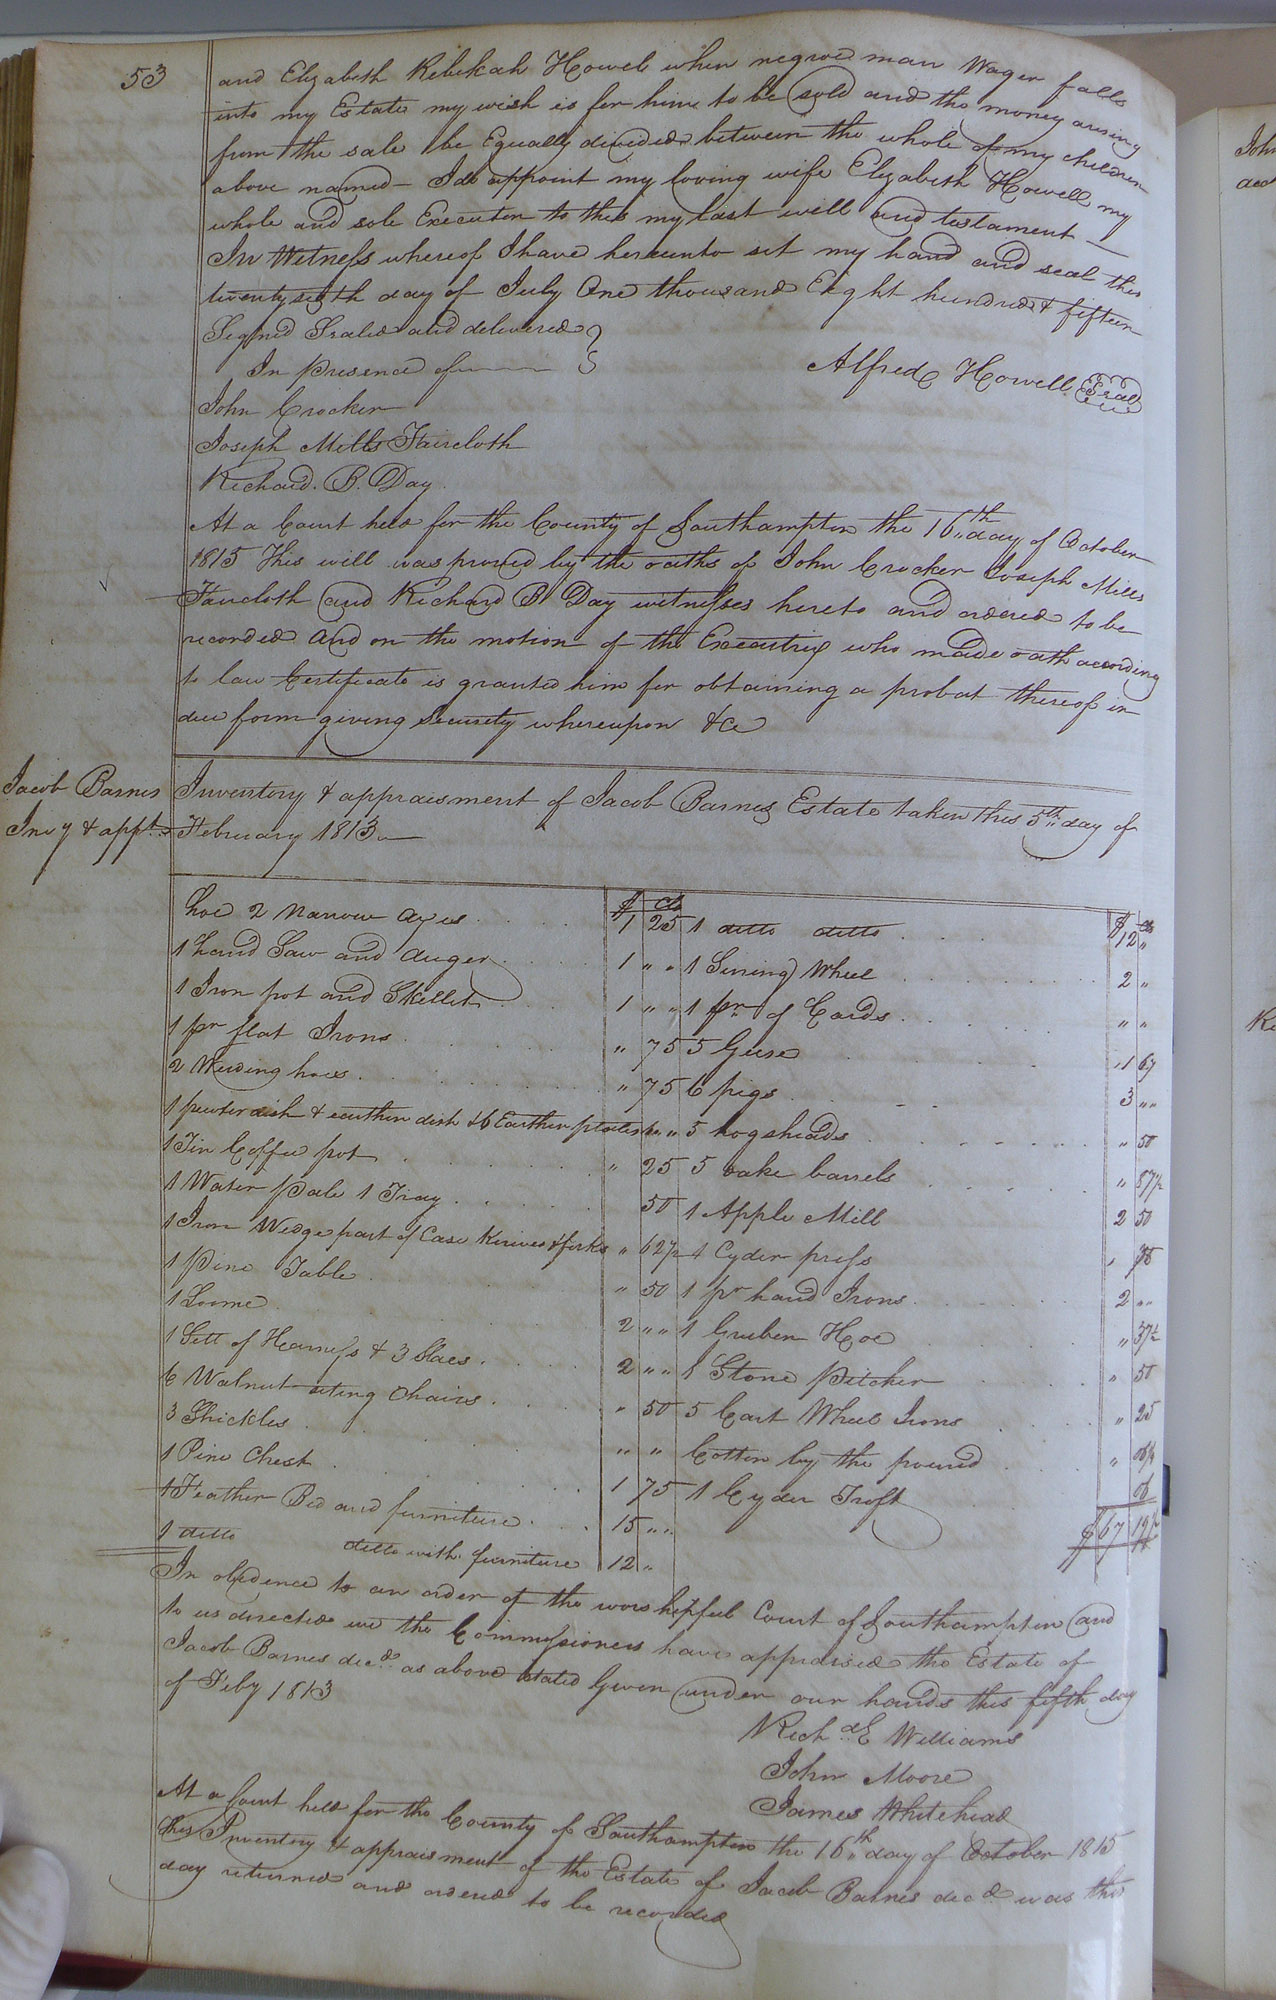 53
and Elizabeth Rebekah Howel when negroe man Wager falls
into my Estate my wish is for him to be sold and the money arising
from the sale be Equally divided between the whole of my children
above named - I do appoint my loving wife Elizabeth Howell my
whole and sole Executor to this my last will and testament
In Witness whereof I have hereunto set my hand and seal this
twentysixth day of July One thousand Eight hundred & fifteen
Signed Sealed and delivered
In presence of
Alfred Howell Seal
John Crocker
Joseph Mills Faircloth
Richard. B. Day
At a Court held for the County of Southampton the 16th day of October
1815 This will was proved by the oaths of John Crocker Joseph Mills
Faircloth and Richard B Day witnesses hereto and ordered to be
recorded And on the motion of the Executrix who made oath according
to law Certificate is granted him for obtaining a probat thereof in
due form giving security whereupon &c
Jacob Barnes
Invy & appt
Inventory & appraisment of Jacob Barnes Estate taken this 5th day of
February 1813
$ Cts
hoe 2 Narrow Axes 1 25
1 hand Saw and Auger 1 " "
1 Iron pot and Skillet 1 " "
1 pr flat Irons " 75
2 Weeding hoes " 75
1 pewter dish & earthen dish & 6 Earthen plates " "
1 Tin Coffee pot " 25
1 Water Pale 1 Tray 50
1 Iron Wedge part of Case Knives & forks " 62½
1 Pine Table " 50
1 Loome 2 " "
1 Sett of Harness & 3 Slaes 2 " "
6 Walnut siting Chairs " 50
3 Shickles " "
1 Pine Chest 1 75
1 Feather Bed and furniture 15 " "
1 ditto ditto with furniture 12 "
$ cts
1 ditto ditto 12 "
1 Sining Wheel 2 "
1 pr of Cards " "
5 Geese 1 67
6 pigs 3 " "
5 hogsheads " 50
5 oake barrels " 87½
1 Apple Mill 2 50
1 Cyder press "
1 pr hand Irons 2 " "
1 Gruben Hoe " 37½
1 Stone Pitcher " 50
5 Cart Wheel Irons " 25
Cotton by the pound " 06¼
1 Cyder Troft
$ 67 19½
In obedence to an order of the worshipful Court of Southampton and
to us directed we the Commissioners have appraised the Estate of
Jacob Barnes decd. as above stated Given under our hands this fifth day
of Feby 1813
Richd E Williams
John Moore
James Whitehead
At a Court held for the County of Southampton the 16th day of October 1815
this Inventory & appraisment of the Estate of Jacob Barnes decd was this
day returned and ordered to be recorded
John